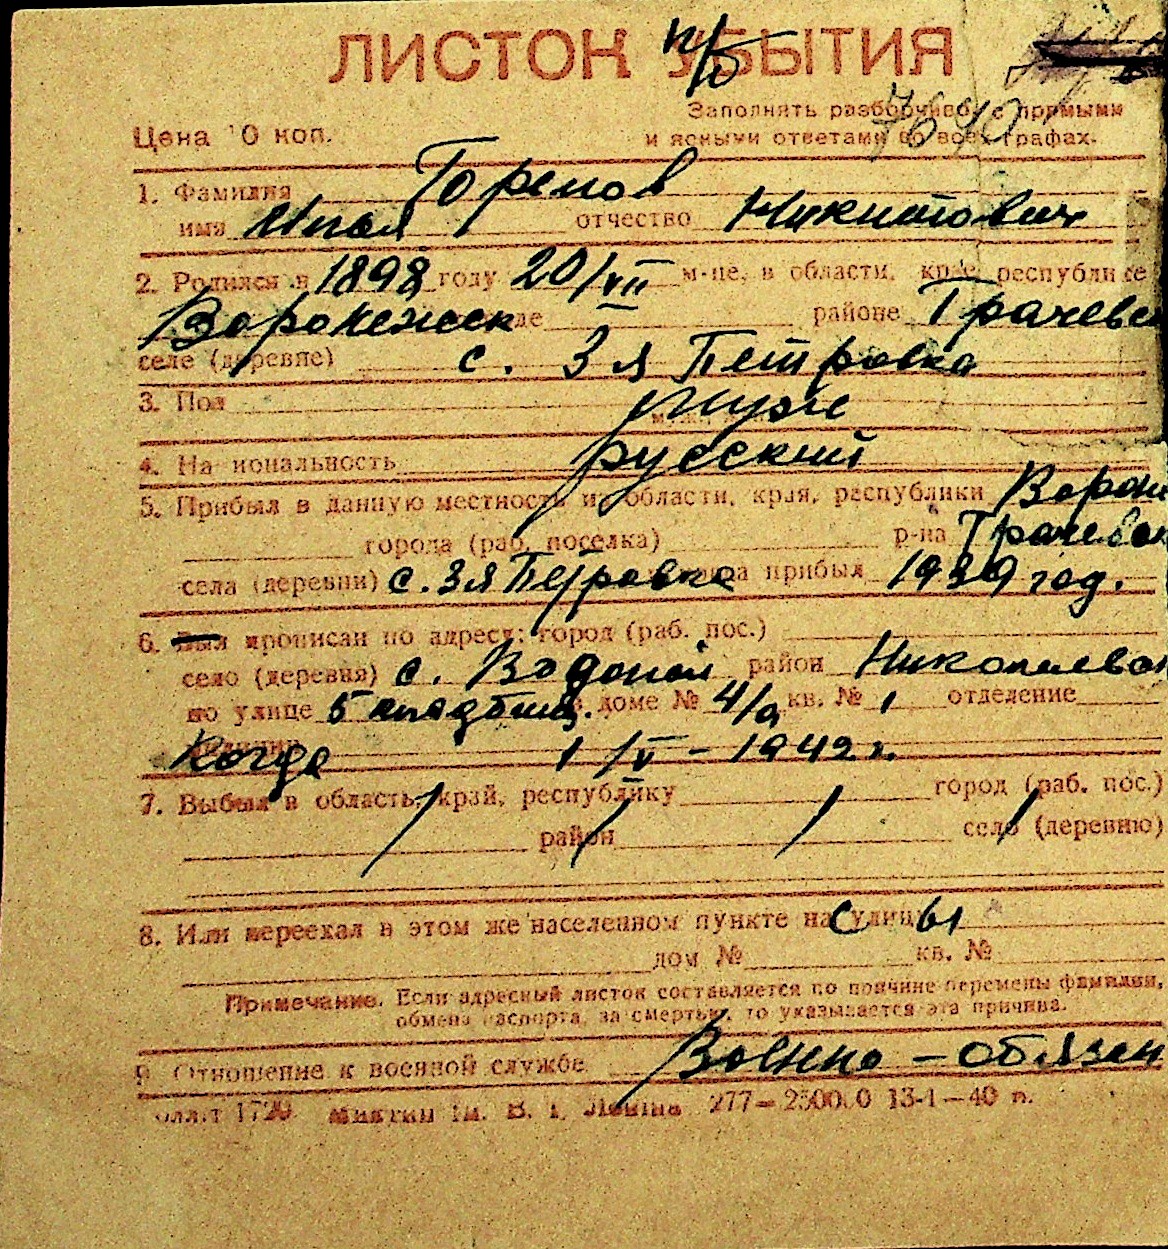 ЛИСТОК УБЫТИЯ
п/б
Заполнять разборчиво, с прямыми
Цена 10 коп. и ясными ответами во всех графах.
7640
1. Фамилия Горепов
имя Илья отчество Никитович
2. Родился в 1898 году 20/VII м-це, в области, крае, республике
Воронежск районе Грачевск
селе (деревне) с. 3 я Петровка
3. Пол муж
4. Национальность русский
5. Прибыл в данную местность из области, края, республики Ворон
города (раб. поселка) р-на Грачевск
села (деревни) с. 3 я Петровка прибыл 1939 год.
6. Был прописан по адресу: город (раб. пос.)
село (деревня) с. Водопой район Николаевск
по улице 5 в доме № 4/а кв. № 1 отделение
милиции Когда 1/V – 1942 г.
7. Выбыл в область, край, республику город (раб. пос.)
район село (деревню)
8. Или переехал в этом же населенном пункте на с улицы
дом № кв. №
Примечание. Если адресный листок составляется по причине перемены фамилии,
обмена паспорта, за смертью, то указывается эта причина.
9. Отношение к военной службе Военно – обязан
277—25000 13-1—40 г.